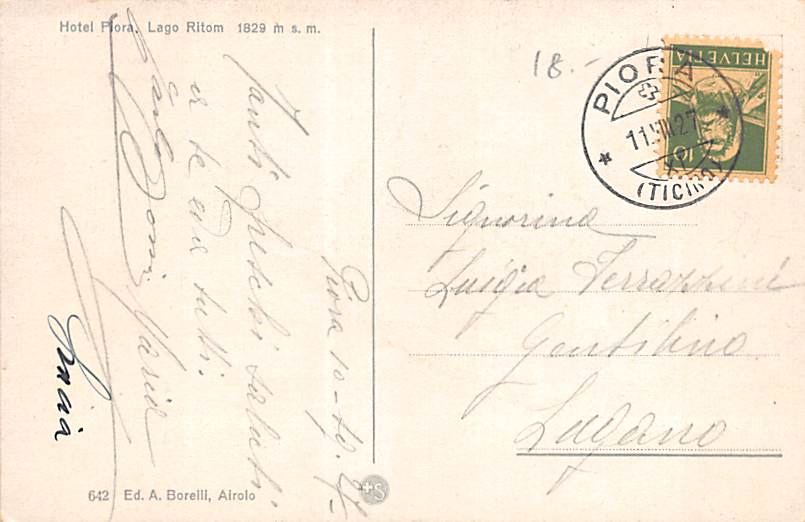 Hotel Piora, Lago Ritom 1829 m s. m.
18.-
HELVETIA
10
PIORA
11.VIII.27
(TICINO)
Piora 10-
Tanti freschi saluti
a te ed a tutti.
Maria
Lucia
Signorina
Luigia Ferrazzini
Gentilino
Lugano
642 Ed. A. Borelli, Airolo
+S